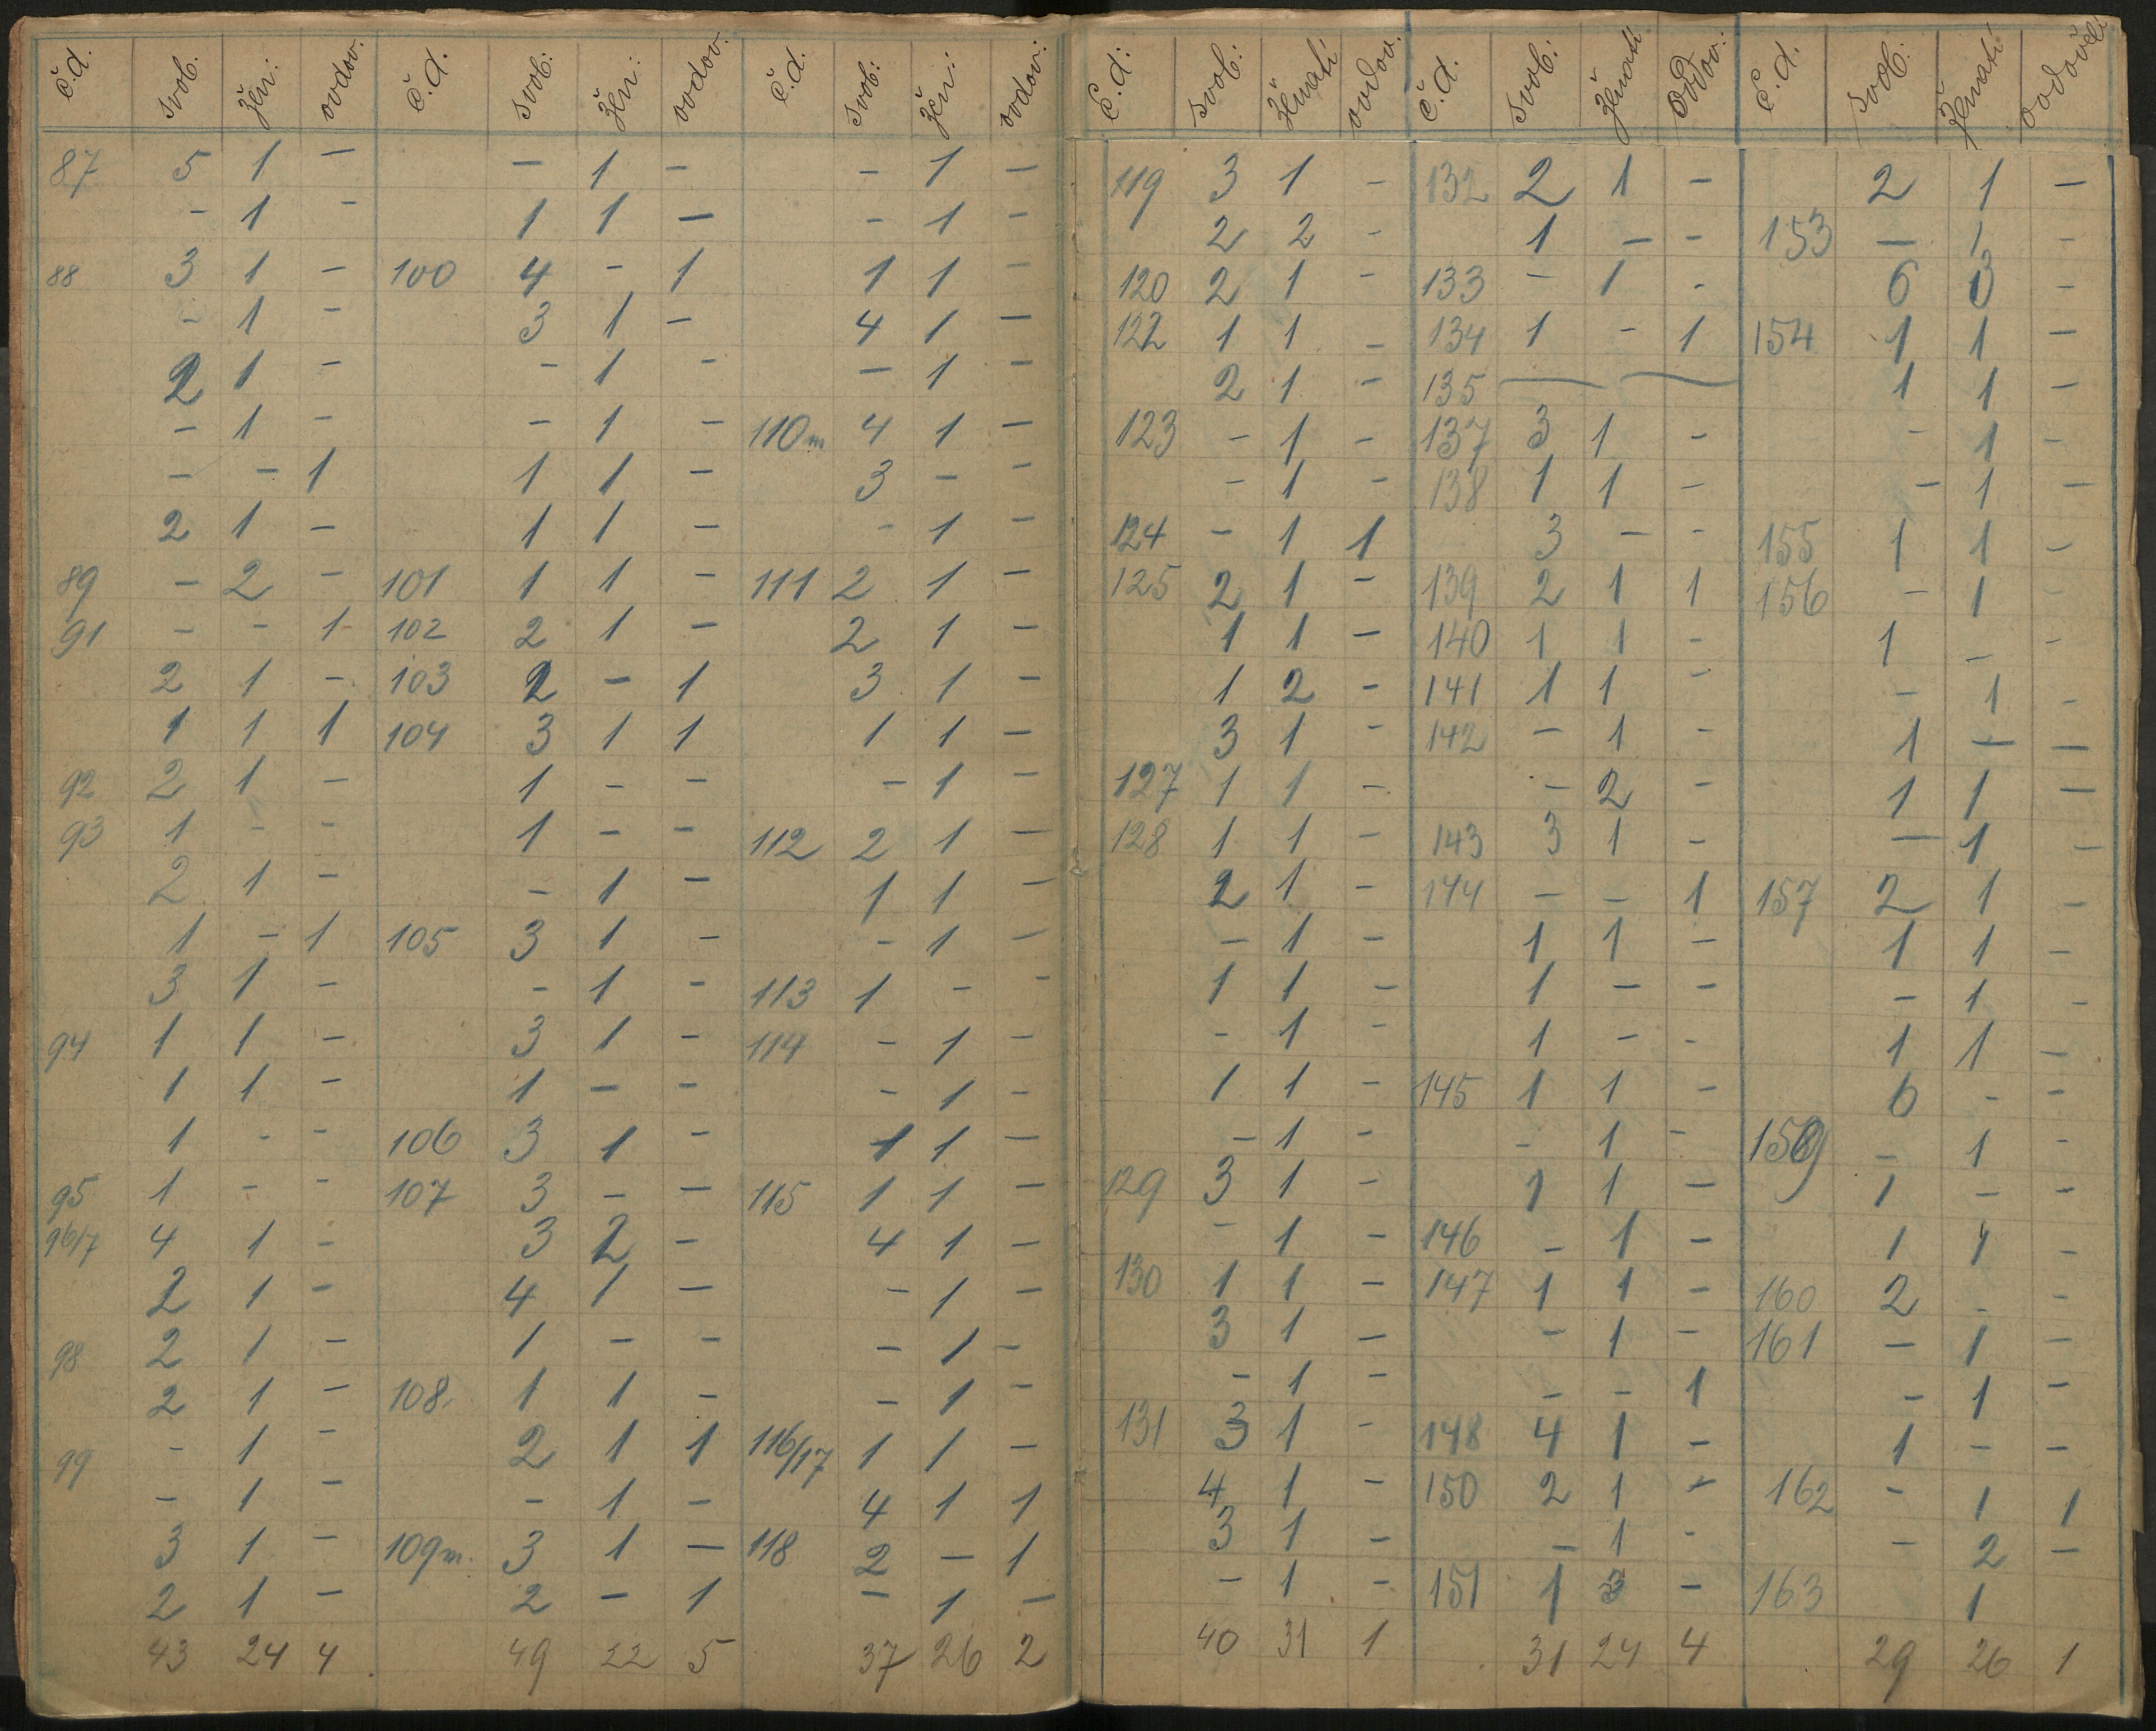 č.d. svob. žen: vodov. č.d. svob: žen: vodov. č.d. svob: žen: vodov:
87 5 1 – – 1 – – 1 –
– 1 – 1 1 – – 1 –
88 3 1 – 100 4 – 1 1 1 –
– 1 – 3 1 – 4 1 –
2 1 – – 1 – – 1 –
– 1 – – 1 – 110m 4 1 –
– – 1 1 1 – 3 – –
2 1 – 1 1 – – 1 –
89 – 2 – 101 1 1 – 111 2 1 –
91 – – 1 102 2 1 – 2 1 –
2 1 – 103 2 – 1 3 1 –
1 1 1 104 3 1 1 1 1 –
92 2 1 – 1 – – – 1 –
93 1 – – 1 – – 112 2 1 –
2 1 – – 1 – 1 1 –
1 – 1 105 3 1 – – 1 –
3 1 – – 1 – 113 1 – –
94 1 1 – 3 1 – 114 – 1 –
1 1 – 1 – – – 1 –
1 – – 106 3 1 – 1 1 –
95 1 – – 107 3 – – 115 1 1 –
96/7 4 1 – 3 2 – 4 1 –
2 1 – 4 1 – – 1 –
98 2 1 – 1 – – – 1 –
2 1 – 108. 1 1 – – 1 –
99 – 1 – 2 1 1 116/17 1 1 –
– 1 – – 1 – 4 1 1
3 1 – 109m. 3 1 – 118 2 – 1
2 1 – 2 – 1 – 1 –
43 24 4 49 22 5 37 26 2
č.d: svob: ženatí vodov. č.d. svob: ženatí vdov: č.d. svob: ženatí vodovělí
119 3 1 – 132 2 1 – 2 1 –
2 2 – 1 – – 153 – 1 –
120 2 1 – 133 – 1 – 6 –
122 1 1 – 134 1 – 1 154 1 1 –
2 1 – 135 — — 1 1 –
123 – 1 – 137 3 1 – – 1 –
– 1 – 138 1 1 – – 1 –
124 – 1 1 3 – – 155 1 1 –
125 2 1 – 139 2 1 1 156 – 1 –
1 1 – 140 1 1 – 1 – –
1 2 – 141 1 1 – – 1 –
3 1 – 142 – 1 – 1 – –
127 1 1 – – 2 – 1 1 –
128 1 1 – 143 3 1 – – 1 –
2 1 – 144 – – 1 157 2 1 –
– 1 – 1 1 – 1 1 –
1 1 – 1 – – – 1 –
– 1 – 1 – – 1 1 –
1 1 – 145 1 1 – 6 – –
– 1 – – 1 – 159 – 1 –
129 3 1 – 1 1 – 1 – –
– 1 – 146 – 1 – 1 1 –
130 1 1 – 147 1 1 – 160 2 – –
3 1 – – 1 – 161 – 1 –
– 1 – – – 1 – 1 –
131 3 1 – 148 4 1 – 1 – –
4 1 – 150 2 1 – 162 – 1 1
3 1 – – 1 – – 2 –
– 1 – 151 1 3 – 163 1
40 31 1 31 24 4 29 26 1